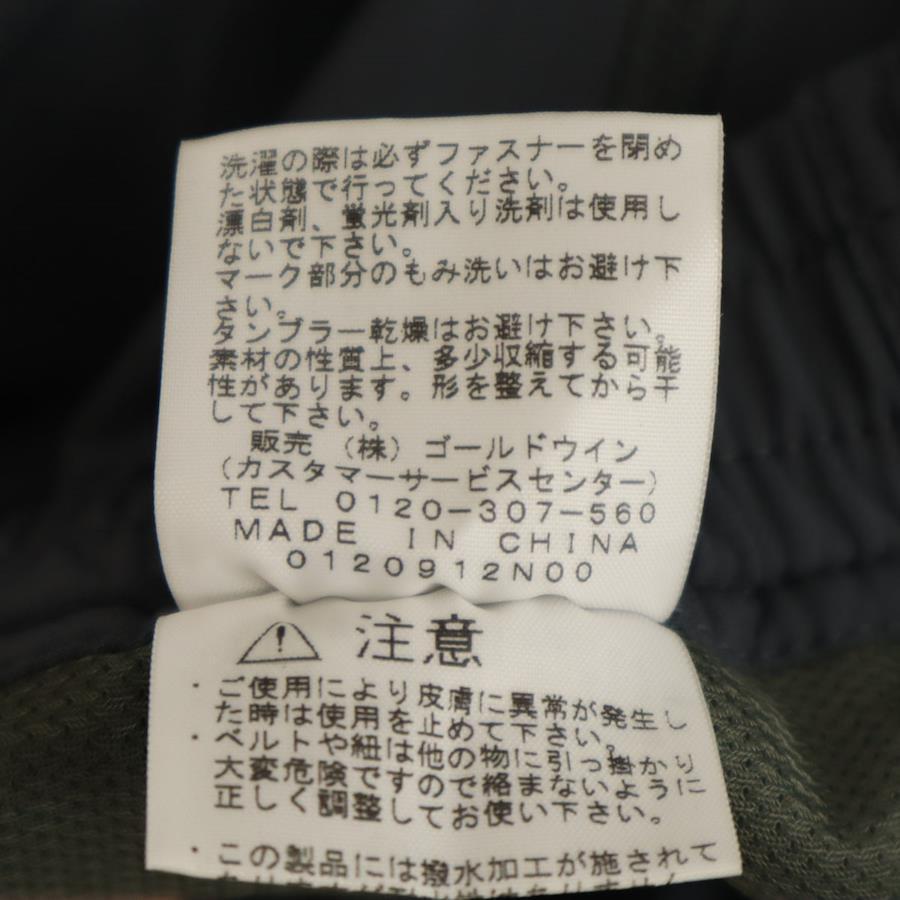 洗濯の際は必ずファスナーを閉め
た状態で行ってください。
漂白剤、蛍光剤入り洗剤は使用し
ないで下さい。
マーク部分のもみ洗いはお避け下
さい。
タンブラー乾燥はお避け下さい。
素材の性質上、多少収縮する可能
性があります。形を整えてから干
して下さい。
販売 (株) ゴールドウイン
(カスタマーサービスセンター)
TEL 0120-307-560
MADE IN CHINA
0120912N00
注意
・ご使用により皮膚に異常が発生し
た時は使用を止めて下さい。
・ベルトや紐は他の物に引っ掛かり
大変危険ですので絡まないように
正しく調整してお使い下さい。
・この製品には撥水加工が施されて